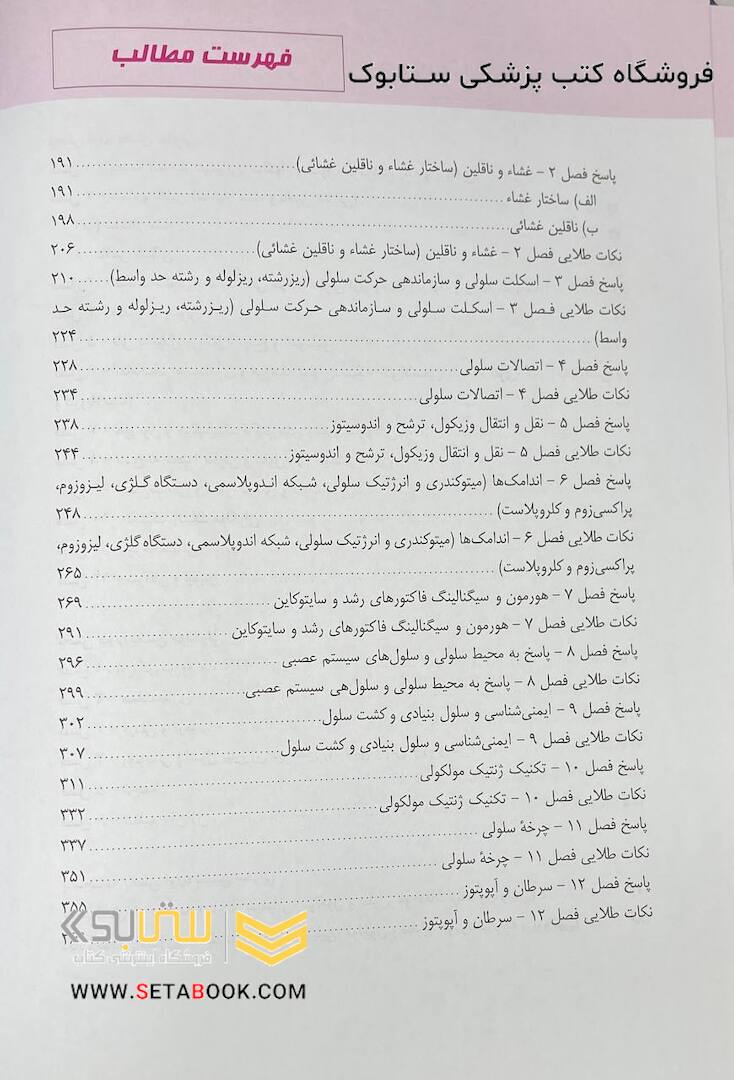 فهرست مطالب
فروشگاه کتب پزشکی ستابوک
پاسخ فصل ۲ - غشاء و ناقلین (ساختار غشاء و ناقلین غشائی) ۱۹۱
الف) ساختار غشاء ۱۹۱
ب) ناقلین غشائی ۱۹۸
نکات طلایی فصل ۲ - غشاء و ناقلین (ساختار غشاء و ناقلین غشائی) ۲۰۶
پاسخ فصل ۳ - اسکلت سلولی و سازماندهی حرکت سلولی (ریزرشته، ریزلوله و رشته حد واسط) ۲۱۰
نکات طلایی فصل ۳ - اسکلت سلولی و سازماندهی حرکت سلولی (ریزرشته، ریزلوله و رشته حد
واسط) ۲۲۴
پاسخ فصل ۴ - اتصالات سلولی ۲۲۸
نکات طلایی فصل ۴ - اتصالات سلولی ۲۳۴
پاسخ فصل ۵ - نقل و انتقال وزیکول، ترشح و اندوسیتوز ۲۳۸
نکات طلایی فصل ۵ - نقل و انتقال وزیکول، ترشح و اندوسیتوز ۲۴۴
پاسخ فصل ۶ - اندامک‌ها (میتوکندری و انرژتیک سلولی، شبکه اندوپلاسمی، دستگاه گلژی، لیزوزوم،
پراکسی‌زوم و کلروپلاست) ۲۴۸
نکات طلایی فصل ۶ - اندامک‌ها (میتوکندری و انرژتیک سلولی، شبکه اندوپلاسمی، دستگاه گلژی، لیزوزوم،
پراکسی‌زوم و کلروپلاست) ۲۶۵
پاسخ فصل ۷ - هورمون و سیگنالینگ فاکتورهای رشد و سایتوکاین ۲۶۹
نکات طلایی فصل ۷ - هورمون و سیگنالینگ فاکتورهای رشد و سایتوکاین ۲۹۱
پاسخ فصل ۸ - پاسخ به محیط سلولی و سلول‌های سیستم عصبی ۲۹۶
نکات طلایی فصل ۸ - پاسخ به محیط سلولی و سلول‌هی سیستم عصبی ۲۹۹
پاسخ فصل ۹ - ایمنی‌شناسی و سلول بنیادی و کشت سلول ۳۰۲
نکات طلایی فصل ۹ - ایمنی‌شناسی و سلول بنیادی و کشت سلول ۳۰۷
پاسخ فصل ۱۰ - تکنیک ژنتیک مولکولی ۳۱۱
نکات طلایی فصل ۱۰ - تکنیک ژنتیک مولکولی ۳۳۲
پاسخ فصل ۱۱ - چرخهٔ سلولی ۳۳۷
نکات طلایی فصل ۱۱ - چرخهٔ سلولی ۳۵۱
پاسخ فصل ۱۲ - سرطان و آپوپتوز ۳۵۵
نکات طلایی فصل ۱۲ - سرطان و آپوپتوز
ستابوک
فروشگاه اینترنتی کتاب
WWW.SETABOOK.COM